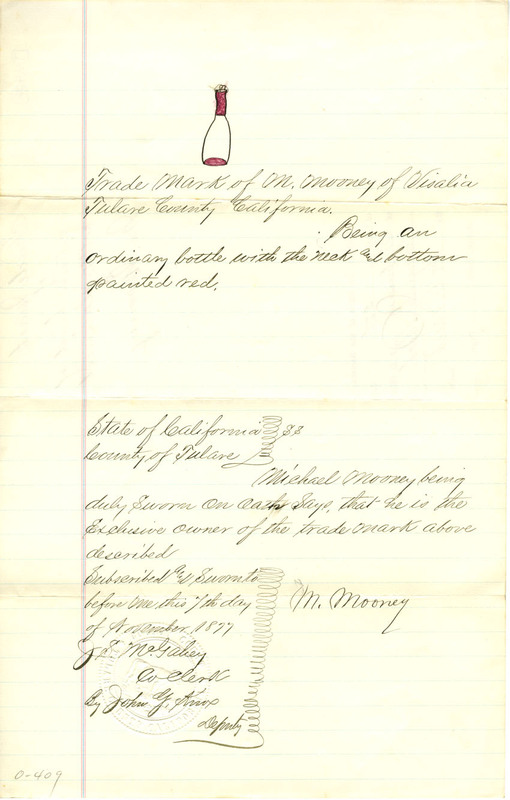 Trade Mark of M. Mooney of Visalia
Tulare County California.
Being an
ordinary bottle with the neck & bottom
painted red.
State of California } SS
County of Tulare
Michael Mooney being
duly Sworn on oath Says, that he is the
Exclusive owner of the trade mark above
described
Subscribed & Sworn to
before me this 7th day
of November 1877
M. Mooney
J E McGahey
Co Clerk
By John G. Knox
Deputy
0-409